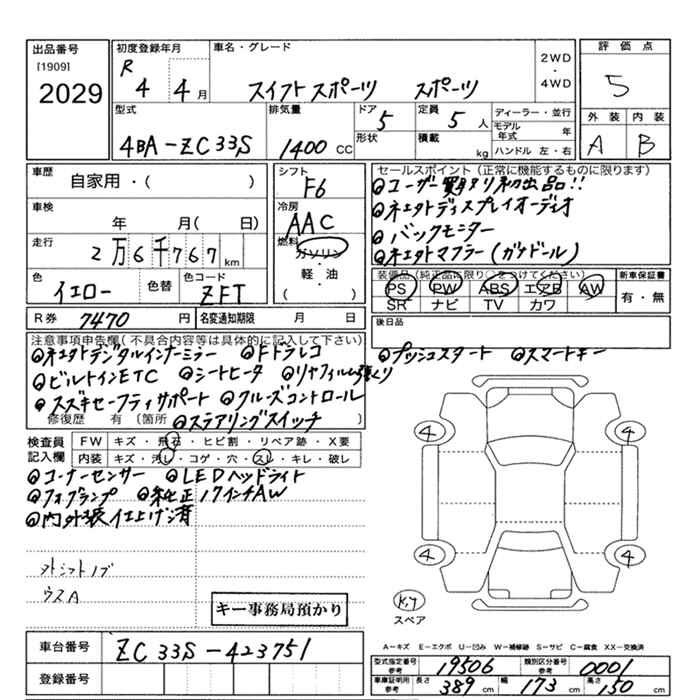 出品番号 初度登録年月 車名・グレード 2WD・4WD 評価点
[1909]
2029 R 4 4月 スイフトスポーツ スポーツ 5
型式 排気量 ドア 5 定員 5人 ディーラー・並行 外装 内装
4BA-ZC33S 1400 CC 形状 積載 kg モデル年式 年 A B
ハンドル 左・右
車歴 自家用・( ) シフト F6 セールスポイント(正常に機能するものに限ります)
◎ユーザー買取り初出品!!
車検 年 月( 日) 冷房 AAC ◎ネエタトディスプレイオーディオ
◎バックモニター
走行 2万6千767km 燃料 ガソリン・軽・油 ( ) ◎ネエタトマフラー(ガケドール)
色 イエロー 色替 色コード ZFT 装備品(純正品に限り○をつけてください) 新車保証書
PS PW ABS エアB AW 有・無
SR ナビ TV カワ
R券 7470円 名変通知期限 月 日 後日品
注意事項申告欄(不具合内容等は具体的に記入して下さい)
◎ネエタトデジタルインナーミラー ◎Fドラレコ ◎プッシュスタート ◎スマートキー
◎ビルトインETC ◎シートヒータ ◎リヤフィルム張くり
◎スズキセーフティサポート ◎クルーズコントロール
修復歴 有 [箇所 ◎ステアリングスイッチ ]
検査員記入欄 FW キズ・飛石・ヒビ割・リペア跡・X要
内装 キズ・汚レ・コゲ・穴・スレ・キレ・破レ
◎コーナーセンサー ◎LEDヘッドライト
◎フォグランプ ◎純正17インチAW
◎内外装仕上げ済
4 4
4 4
外シフトノブ
ウスA
キー事務局預かり
スペア
車台番号 ZC33S-423751
A-キズ E-エクボ U-凹み W-補修跡 S-サビ C-腐食 XX-交換済
登録番号 型式指定番号参考 19506 類別区分番号参考 0001
車庫証明用参考 長さ 389cm 幅 173cm 高さ 150cm